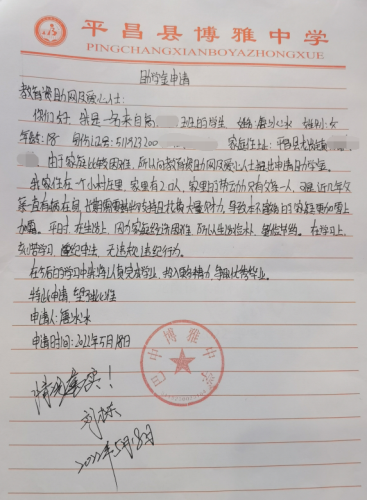 平昌县博雅中学
PINGCHANGXIANBOYAZHONGXUE
助学金申请
教育资助网及爱心人士:
你们好 我是一名来自高 班的学生 姓名:唐冰冰 性别:女
年龄:18 身份证号:511923200 家庭住址:平昌县
由于家庭比较困难,所以向教育资助网及爱心人士提出申请助学金。
我家住在一个小村庄里,家里有2口人,家里的劳动力只有父亲一人,可是近几年父
亲一直有病在身,长期需要药物支持且花费大量财力,导致本不富裕的家庭更加雪上
加霜。平时,在生活上,因为家庭经济困难,所以生活俭朴、勤俭节约。在学习上,
刻苦学习 遵纪守法,无违规违纪行为。
在今后的学习中我将认真完成学业,投入更多精力,争取优秀毕业。
特此申请 望予批准
申请人:唐冰冰
申请时间:2022年5月18日
巴中博雅中学
情况属实!
2022年5月18日